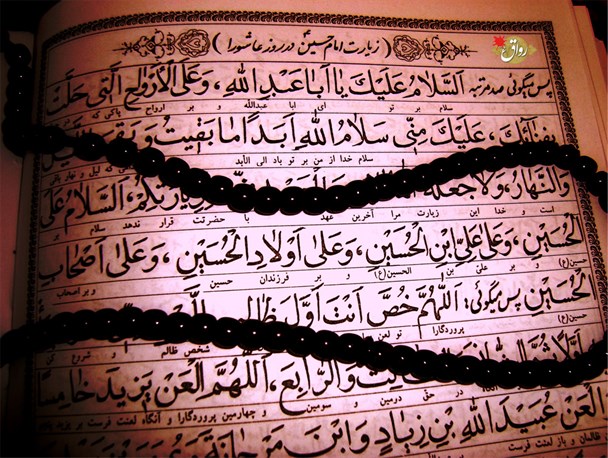 رواق
(زیارت امام حسین در روز عاشورا)
پس میگوئی صد مرتبه اَلسَّلامُ عَلَیْكَ یا اَبا عَبْدِ اللهِ، وَعَلَی الْاَرْواحِ الَّتی حَلَّتْ
سلام بر تو ای ابا عبدالله و بر ارواح پاکی که
بِفِنائِكَ، عَلَیْكَ مِنّی سَلامُ اللهِ اَبَدًا ما بَقیتُ وَ بَقِیَ اللَّیْلُ
سلام خدا از من بر تو باد الی الابد که لیل و نهار
وَالنَّهارُ، وَلا جَعَلَهُ لِزِیارَتِکُمْ، اَلسَّلامُ عَلَی
است و خدا این زیارت مرا آخرین عهد با حضرتت قرار ندهد سلام بر
الْحُسَیْنِ، وَعَلی عَلِیِّ ابْنِ الْحُسَیْنِ، وَعَلی اَوْلادِ الْحُسَیْنِ، وَعَلی اَصْحابِ
حسین(ع) و بر علی بن الحسین(ع) و بر فرزندان حسین و بر اصحاب
الْحُسَیْنِ پس میگوئی: اَللّهُمَّ خُصَّ اَنْتَ اَوَّلَ
حسین(ع) پروردگارا تو لعن شخص ظالم و شروع
وَالرّابِعَ، اَللّهُمَّ الْعَنْ یَزیدَ خامِسًا
در حق دومین و سومین و چهارمین پروردگارا و آنگاه لعنت فرست بر
الْعَنْ عُبَیْدَ اللهِ بْنَ زِیادٍ وَابْنَ مَرْجانَةَ